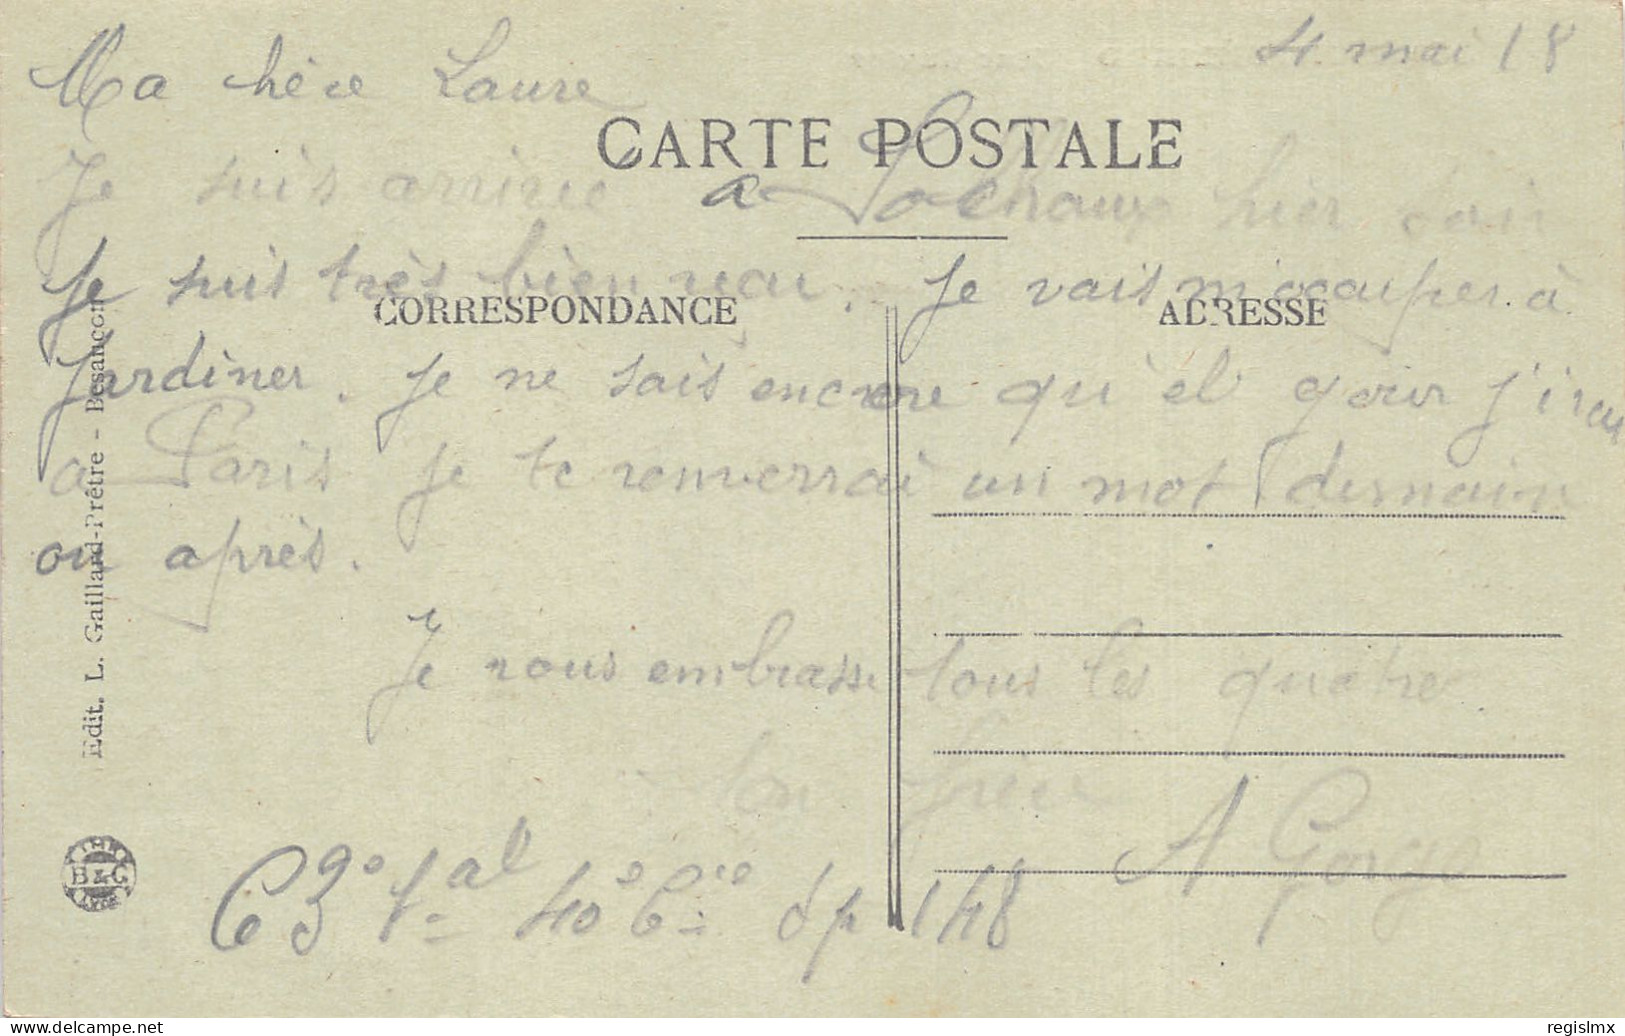 4 mai 18
Ma hère Laure
CARTE POSTALE
Je suis arrivé a Sochaux hier soir
Je suis très bien Je vais m'occuper à
CORRESPONDANCE
ADRESSE
Jardiner. Je ne sais encore qu'el jour j'irai
a Paris Je te renverrai un mot demain
ou après.
Je vous embrasse tous les quatre
ton frère
A
63 40e Cie Sp 148
Edit. L. Gaillard-Prêtre - Besançon
B & C
delcampe.net
regislmx